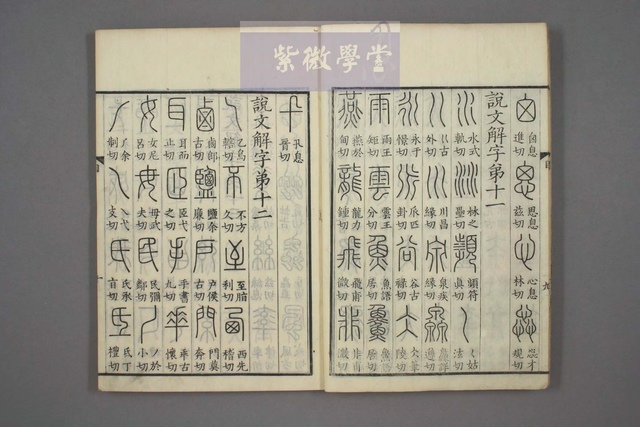 紫微學堂
囟息進切 思息茲切 心息林切 惢才規切
說文解字弟十一
水式軌切 沝之壘切 頻符真切
巜古外切 川昌緣切 泉疾緣切
永于憬切 𠂢匹卦切 谷古
雨王矩切 雲王分切 魚語居切
燕於甸切 龍力鍾切 飛甫微切 非甫微切
卂息晉切
說文解字弟十二
乙烏轄切 不方久切 至脂利切 西先稽切
鹵郎古切 鹽余廉切 戶侯古切 門莫奔切
耳而止切 手書九切
女尼呂切 毋武夫切 民彌鄰切 丿於小切
厂余制切 乁弋支切 氏承旨切 氐丁禮切